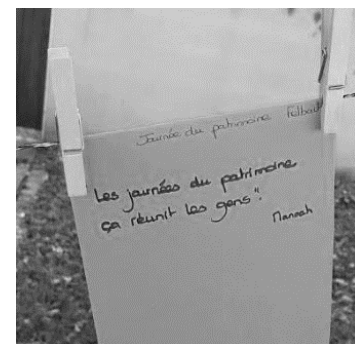 Journée du patrimoine
Les journées du patrimoine
ça réunit les gens".
Mannah